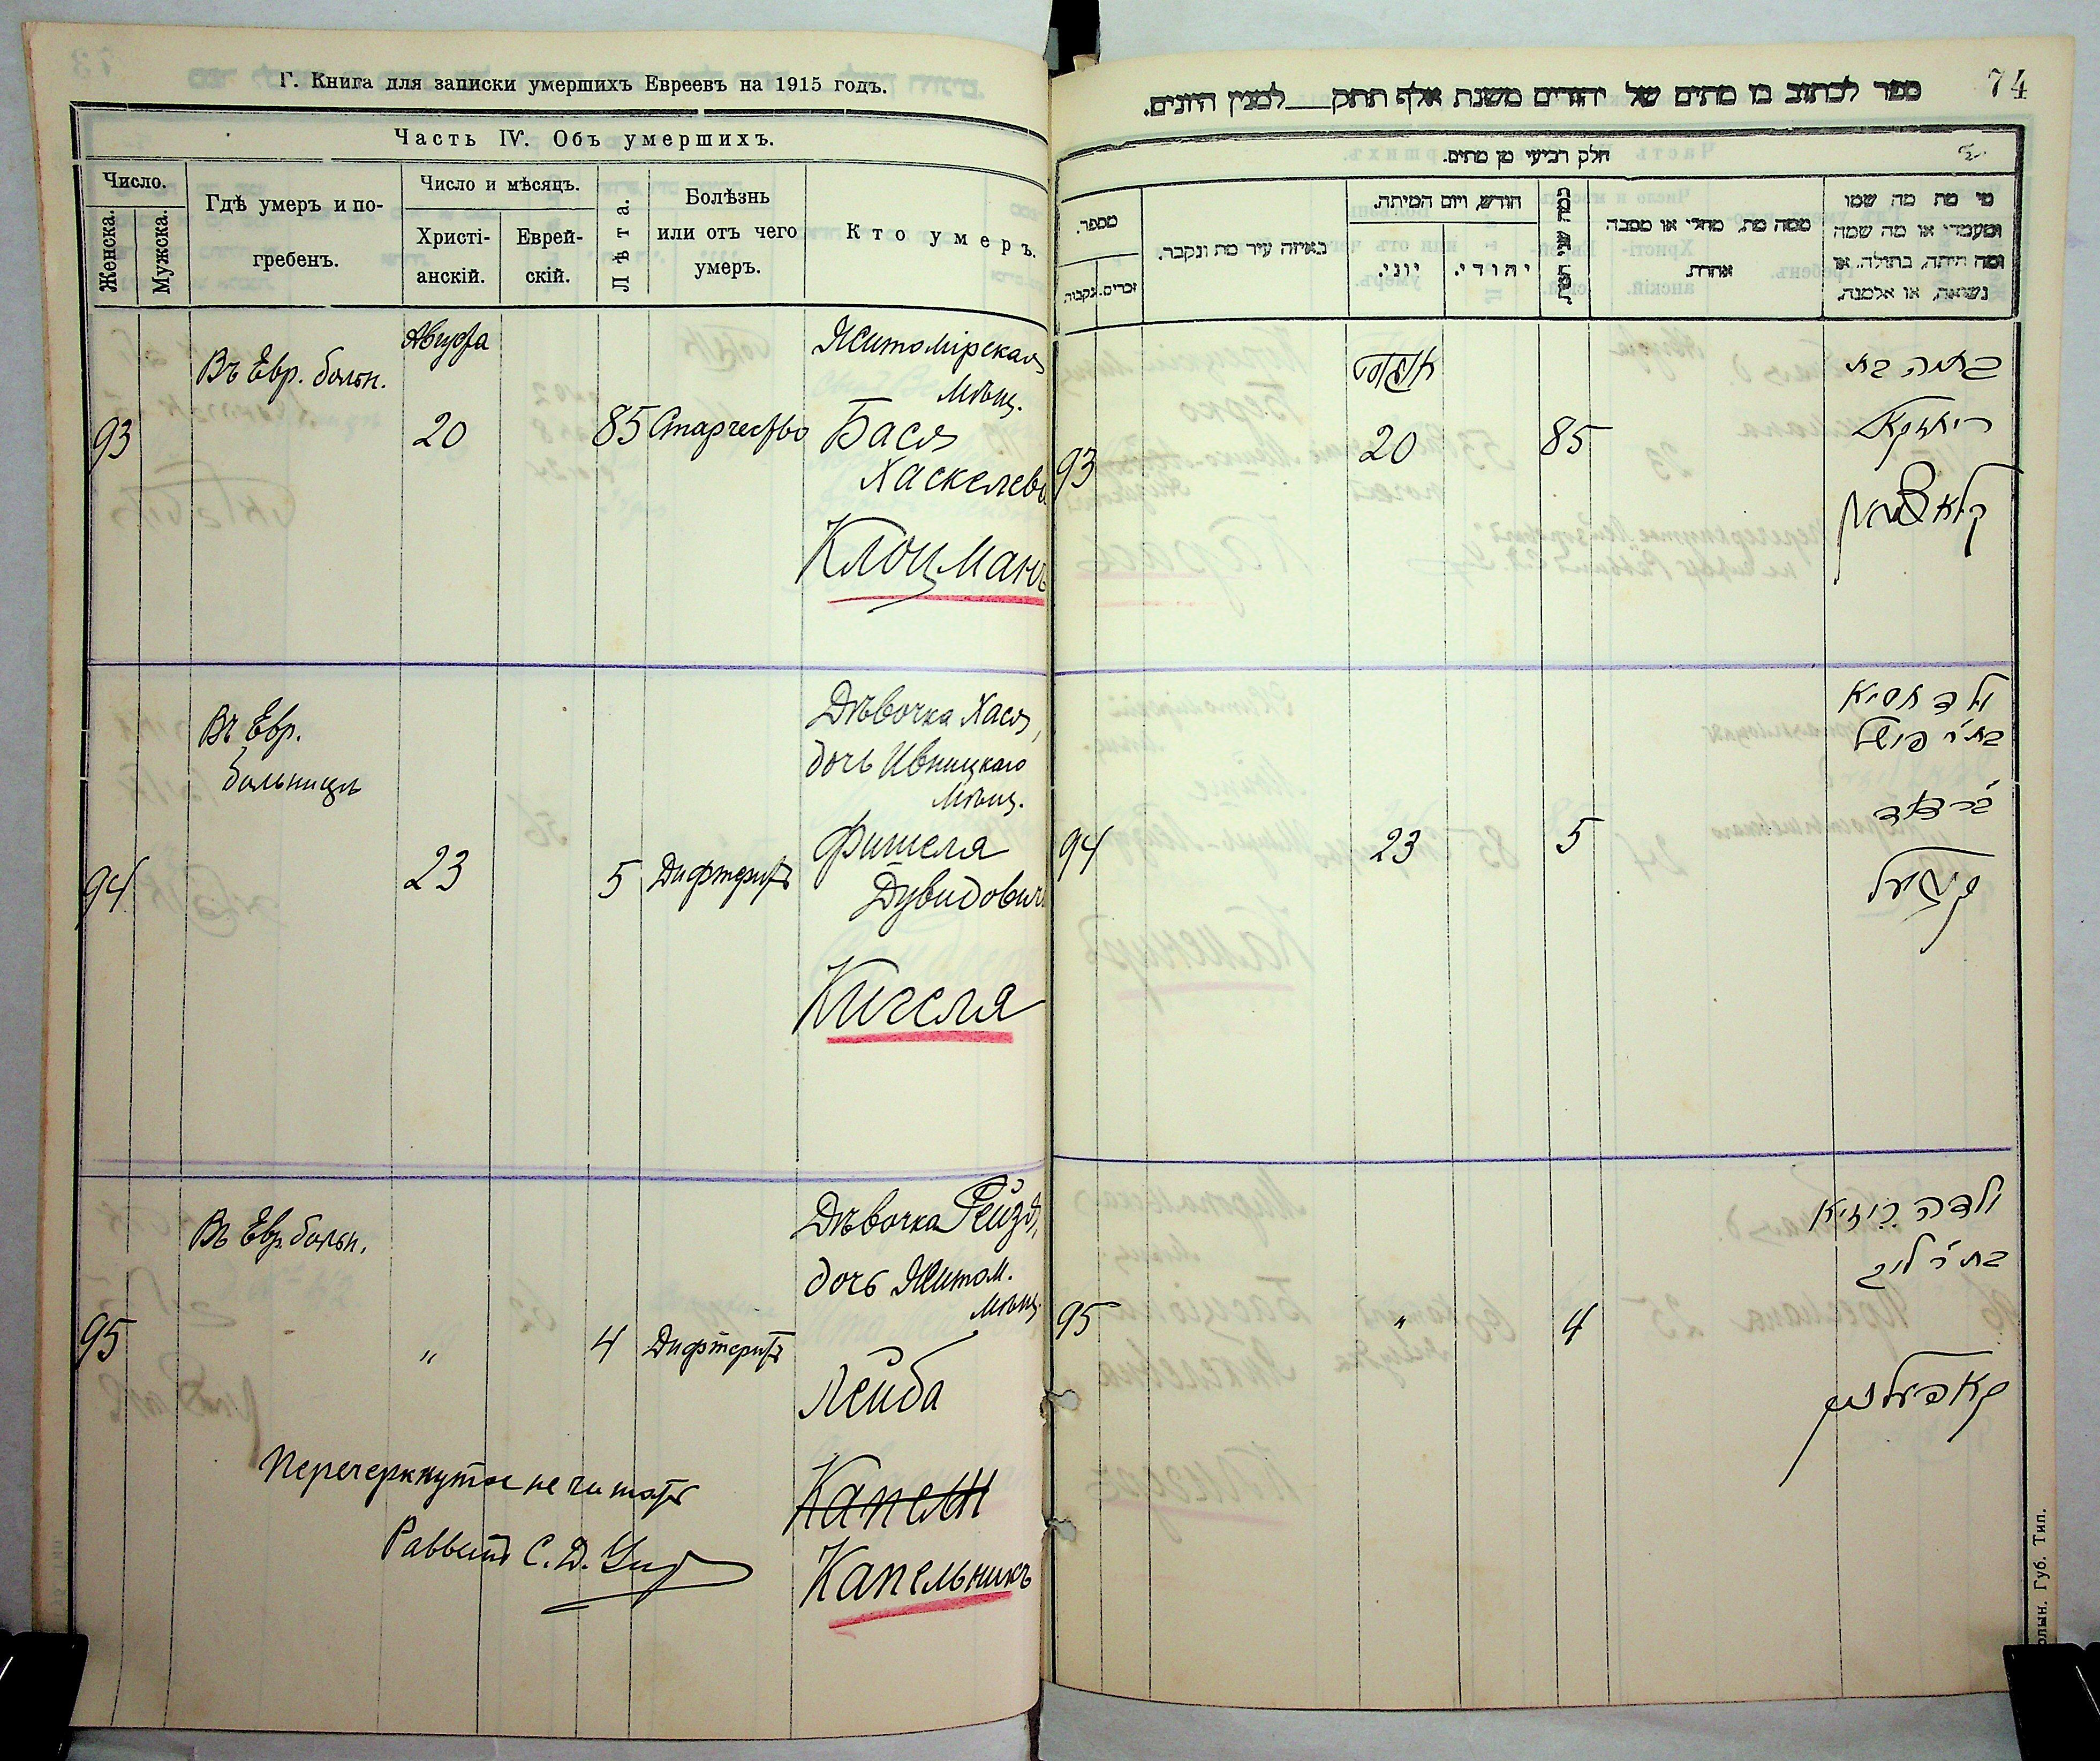 Г. Книга для записки умершихъ Евреевъ на 1915 годъ.
Часть IV. Объ умершихъ.
Число.
Женска.
Мужска.
Гдѣ умеръ и по-
гребенъ.
Число и мѣсяцъ.
Христі-
анскій.
Еврей-
скій.
Лѣта.
Болѣзнь
или отъ чего
умеръ.
Кто умеръ.
93
Въ Евр. больн.
Августа
20
85
Старчество
Житомірская
Мѣщ.
Бася
Хаскелевна
Клоцманъ
94
Въ Евр.
больницѣ
23
5
Дифтеритъ
Дѣвочка Хася,
дочь Ивницкаго
Мѣщ.
Фишеля
Дувидовича
Кигеля
95
Въ Евр. больн.
"
4
Дифтеритъ
Дѣвочка Рейзя,
дочь Житом.
Мѣщ.
Лейба
Капелн
Капельникъ
Перечеркнутое не читать
Раввинъ С. Д.
74
ספר לכתוב בו מתים של יהודים משנת אלף תתק___למנין היונים.
חלק רביעי מן מתים.
מספר.
נקבות
זכרים.
באיזה עיר מת ונקבר.
חודש, ויום המיתה.
יוני.
יהודי.
כמה שני חייו
ממה מת, מחלי או מסבה
אחרת.
מי מת מה שמו
ומעמדו או מה שמה
ומה היתה, בתולה, או
נשואה, או אלמנה.
93
אווגוסט
20
85
באסה בת
קלאצמאן
94
23
5
ילדה חסיא
בת ר' פישל
קיגעל
95
"
4
ילדה רייזיא
בת ר' ליב
קאפעלניק
олын. Губ. Тип.